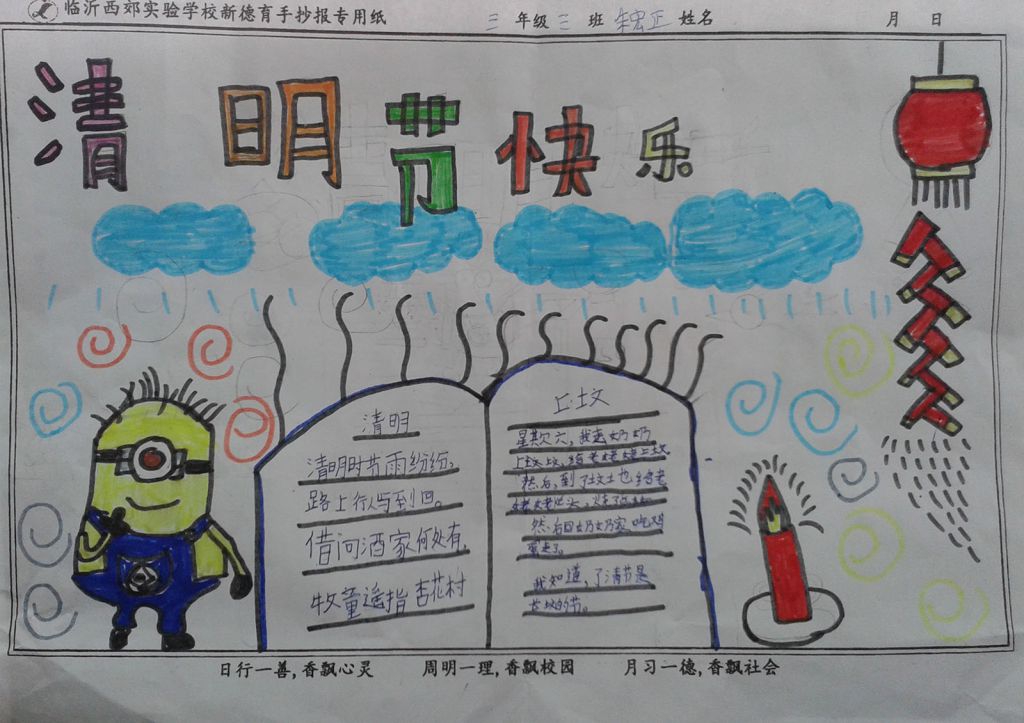 临沂西郊实验学校新德育手抄报专用纸 三 年级 三 班 朱宏正 姓名 月 日
清明节快乐
清明
清明时节雨纷纷,
路上行人写到回。
借问酒家何处有,
牧童遥指杏花村
上坟
星期六,我去奶奶
上坟,给老姥姥上坟
然后,到了坟土也给老
然后回奶奶家吃鸡
蛋走了。
我知道,了清节是
上坟的节。
日行一善,香飘心灵 周明一理,香飘校园 月习一德,香飘社会